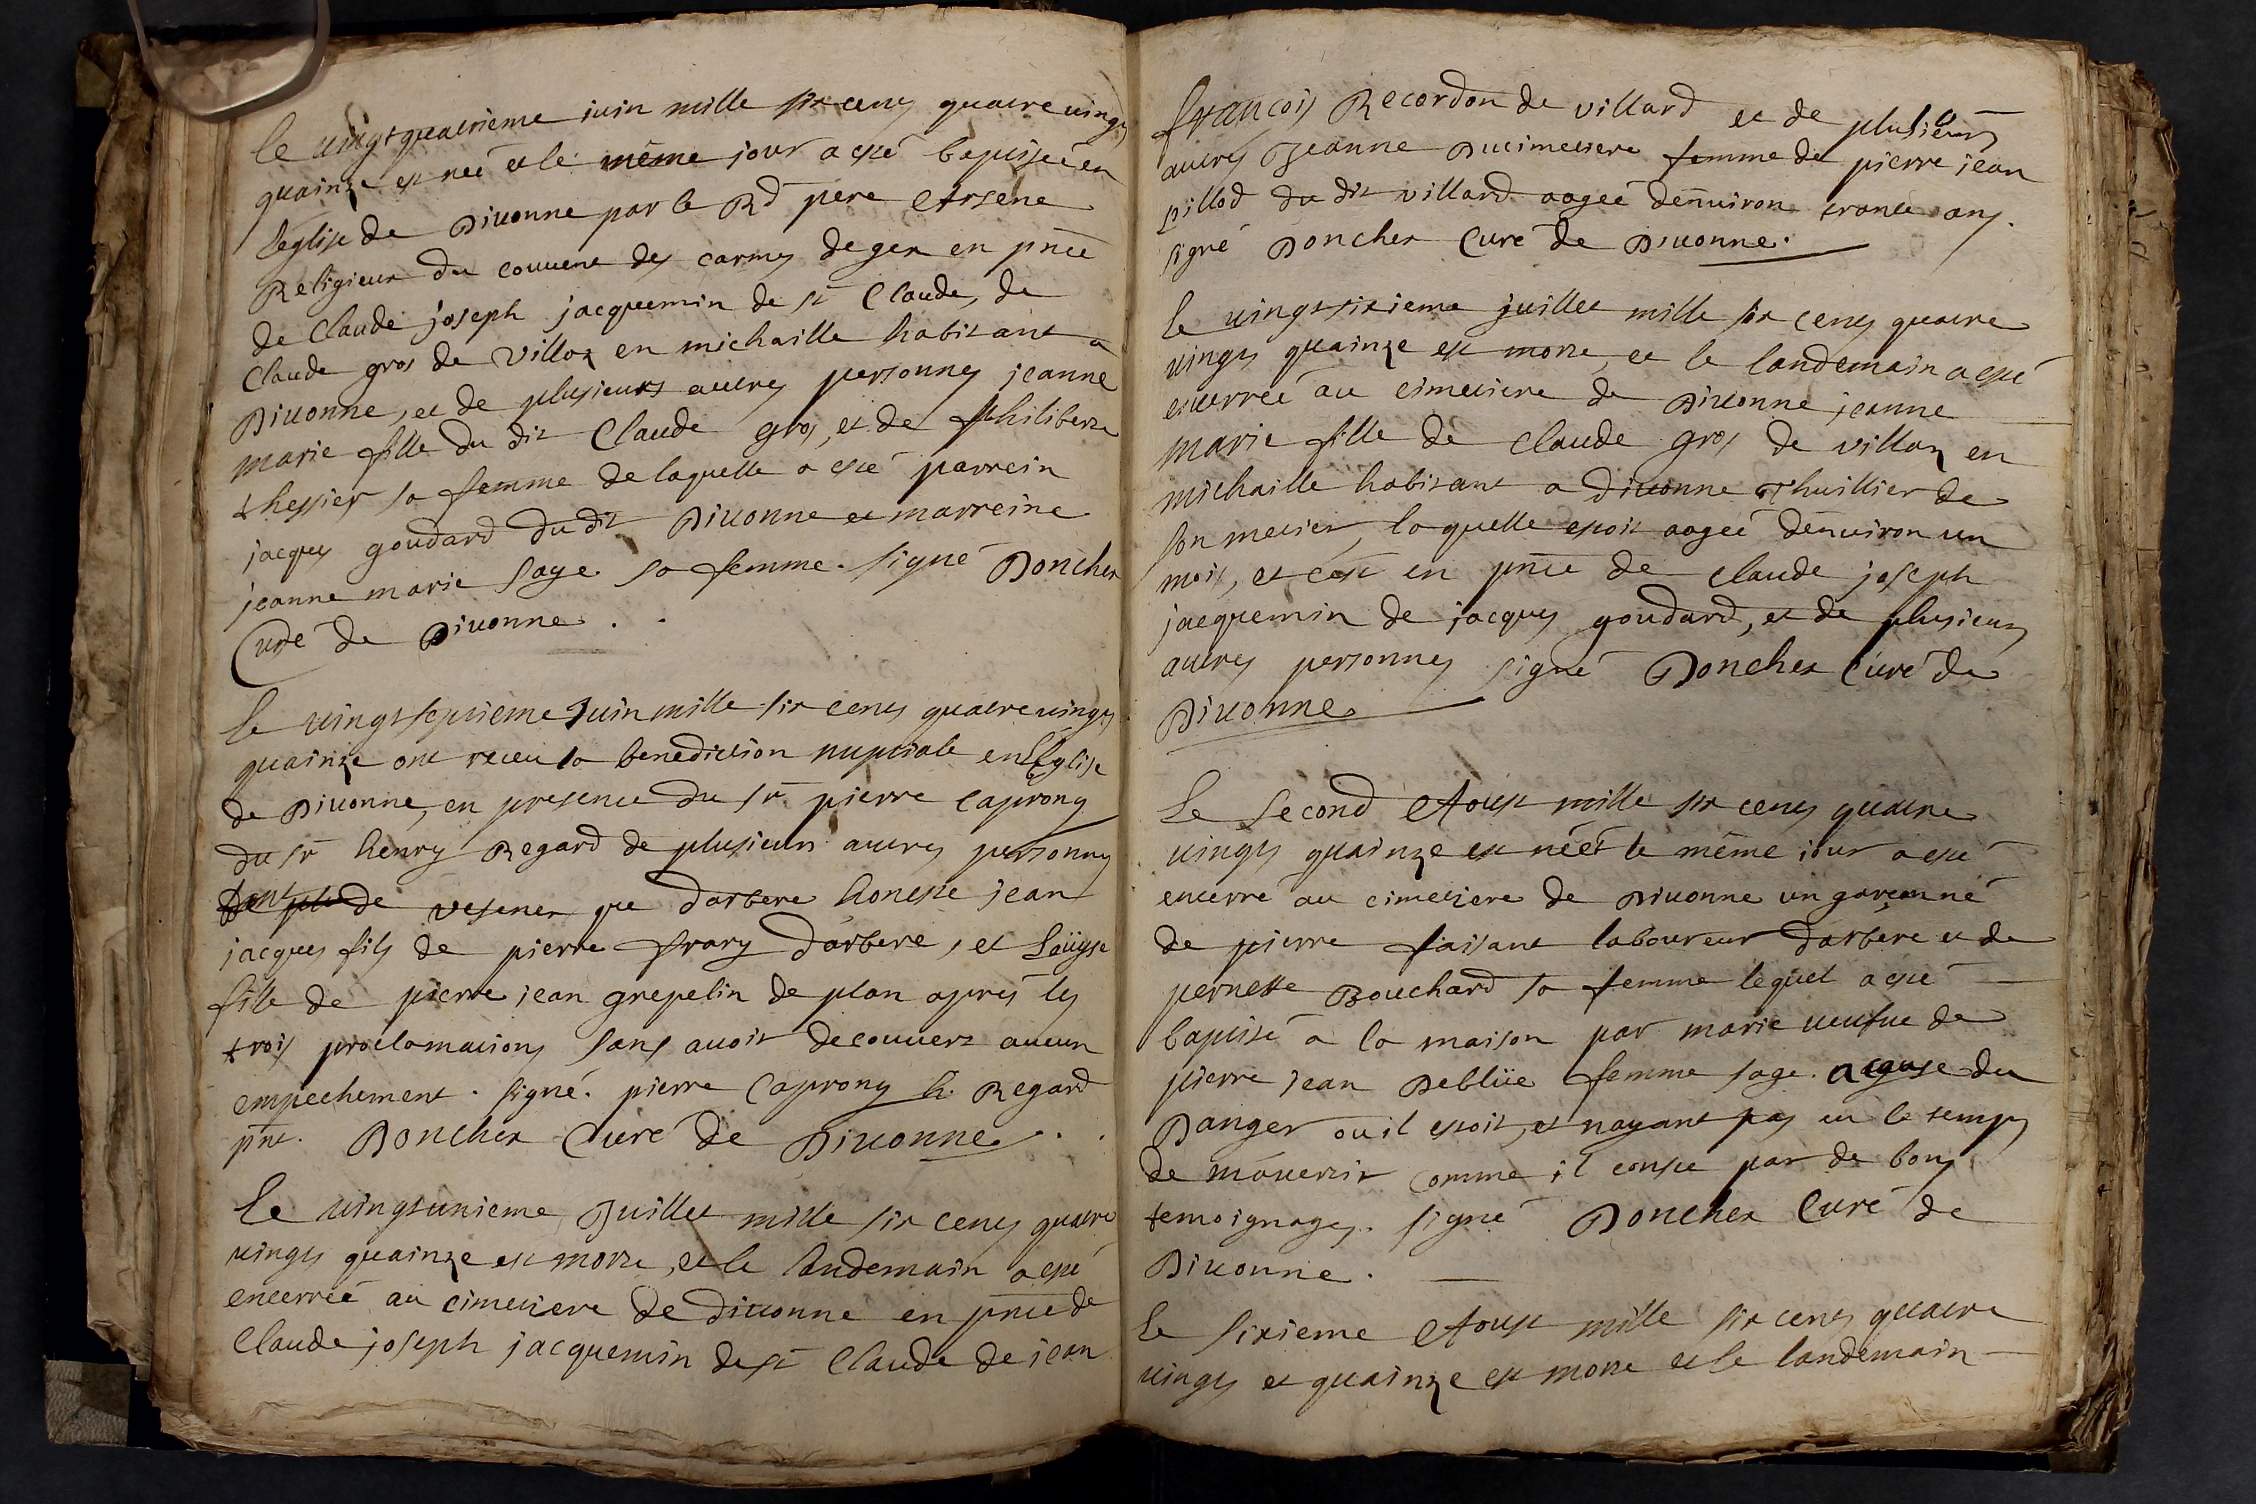 le vingt quatrieme iuin mille six cens quatre vingts
quainze est neé et le même jour a esté baptiseé en
leglise de Divonne par le Rd pere Arsene
Religieux du couvent des carmes de gex en pnce
de Claude joseph jacquemin de st Claude, de
Claude gros de Villaz en michaille habitant a
Divonne, et de plusieurs autres personnes jeanne
marie fille du dit Claude gros, et de philiberte
thessier sa femme de laquelle a esté parrein
jacques goudard du dit Divonne et marreine
jeanne marie sage sa femme. signé Donchex
Curé de Divonne . .
le vingt septieme Juin mille six cens quatre vingts
quainze ont receu la benediction nuptiale en leglise
de Divonne, en presence du sr pierre caprony
du sr henry Regard de plusieurs autres personnes
de vesenex que darbere honeste jean
jacques fils de pierre frary darbere, et Loüyse
fille de pierre jean grepelin de plan aprés les
trois proclamations sans avoir decouvert aucun
empechement. signé. pierre Caprony h. Regard
pnt. Donchex Curé de Divonne . .
Le vingt unieme Juillet mille six cens quatre
vingts quainze est morte, et le landemain a esté
enterreé au cimetiere de divonne en pnce de
Claude joseph jacquemin de st Claude de jean
françois Recordon de villard et de plusieurs
autres Jeanne Ducimetiere femme de pierre jean
pillod du dit villard aageé denviron trante ans.
signé Donchex Curé de Divonne.
le vingt sixieme juillet mille six cens quatre
vingts quainze est morte, et le landemain a esté
enterreé au cimetiere de Divonne jeanne
marie fille de claude gros de villaz en
michaille habitant a divonne Thuillier de
son metier, laquelle estoit aageé denviron un
mois, et cest en pnce de claude joseph
jacquemin de jacques goudard, et de plusieurs
autres personnes signé Donchex Curé de
Divonne
Le second Aoust mille six cens quatre
vingts quainze est né et le même jour a esté
enterré au cimetiere de Divonne un garçon né
de pierre faisant laboureur darbere et de
pernette Bouchard sa femme lequel a esté
baptisé a la maison par marie veufue de
pierre jean Deblüe femme sage. a cause du
Danger ou il estoit, et nayant pas eu le temps
de mavertir comme il conste par de bons
temoignages. signé Donchex Curé de
Divonne.
Le sixieme Aoust mille six cens quatre
vingts et quainze est morte et le landemain